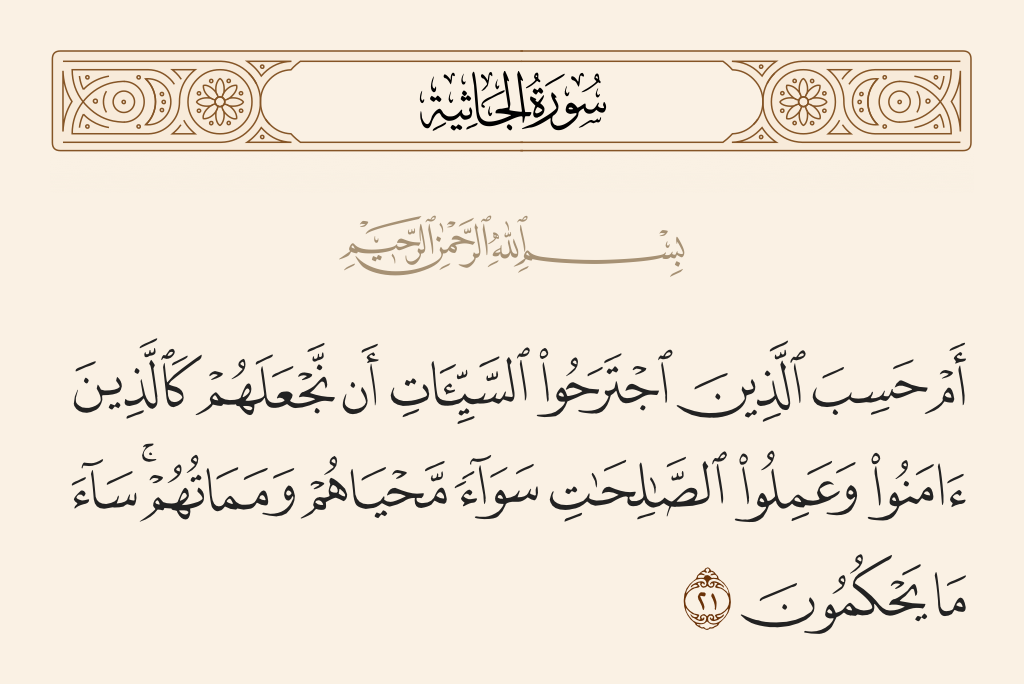 سُورَةُ الجَاثِيةِ
بِسْمِ ٱللَّهِ ٱلرَّحْمَٰنِ ٱلرَّحِيمِ
أَمْ حَسِبَ ٱلَّذِينَ ٱجْتَرَحُوا۟ ٱلسَّيِّـَٔاتِ أَن نَّجْعَلَهُمْ كَٱلَّذِينَ
ءَامَنُوا۟ وَعَمِلُوا۟ ٱلصَّـٰلِحَـٰتِ سَوَآءً مَّحْيَاهُمْ وَمَمَاتُهُمْ ۚ سَآءَ
مَا يَحْكُمُونَ ٢١